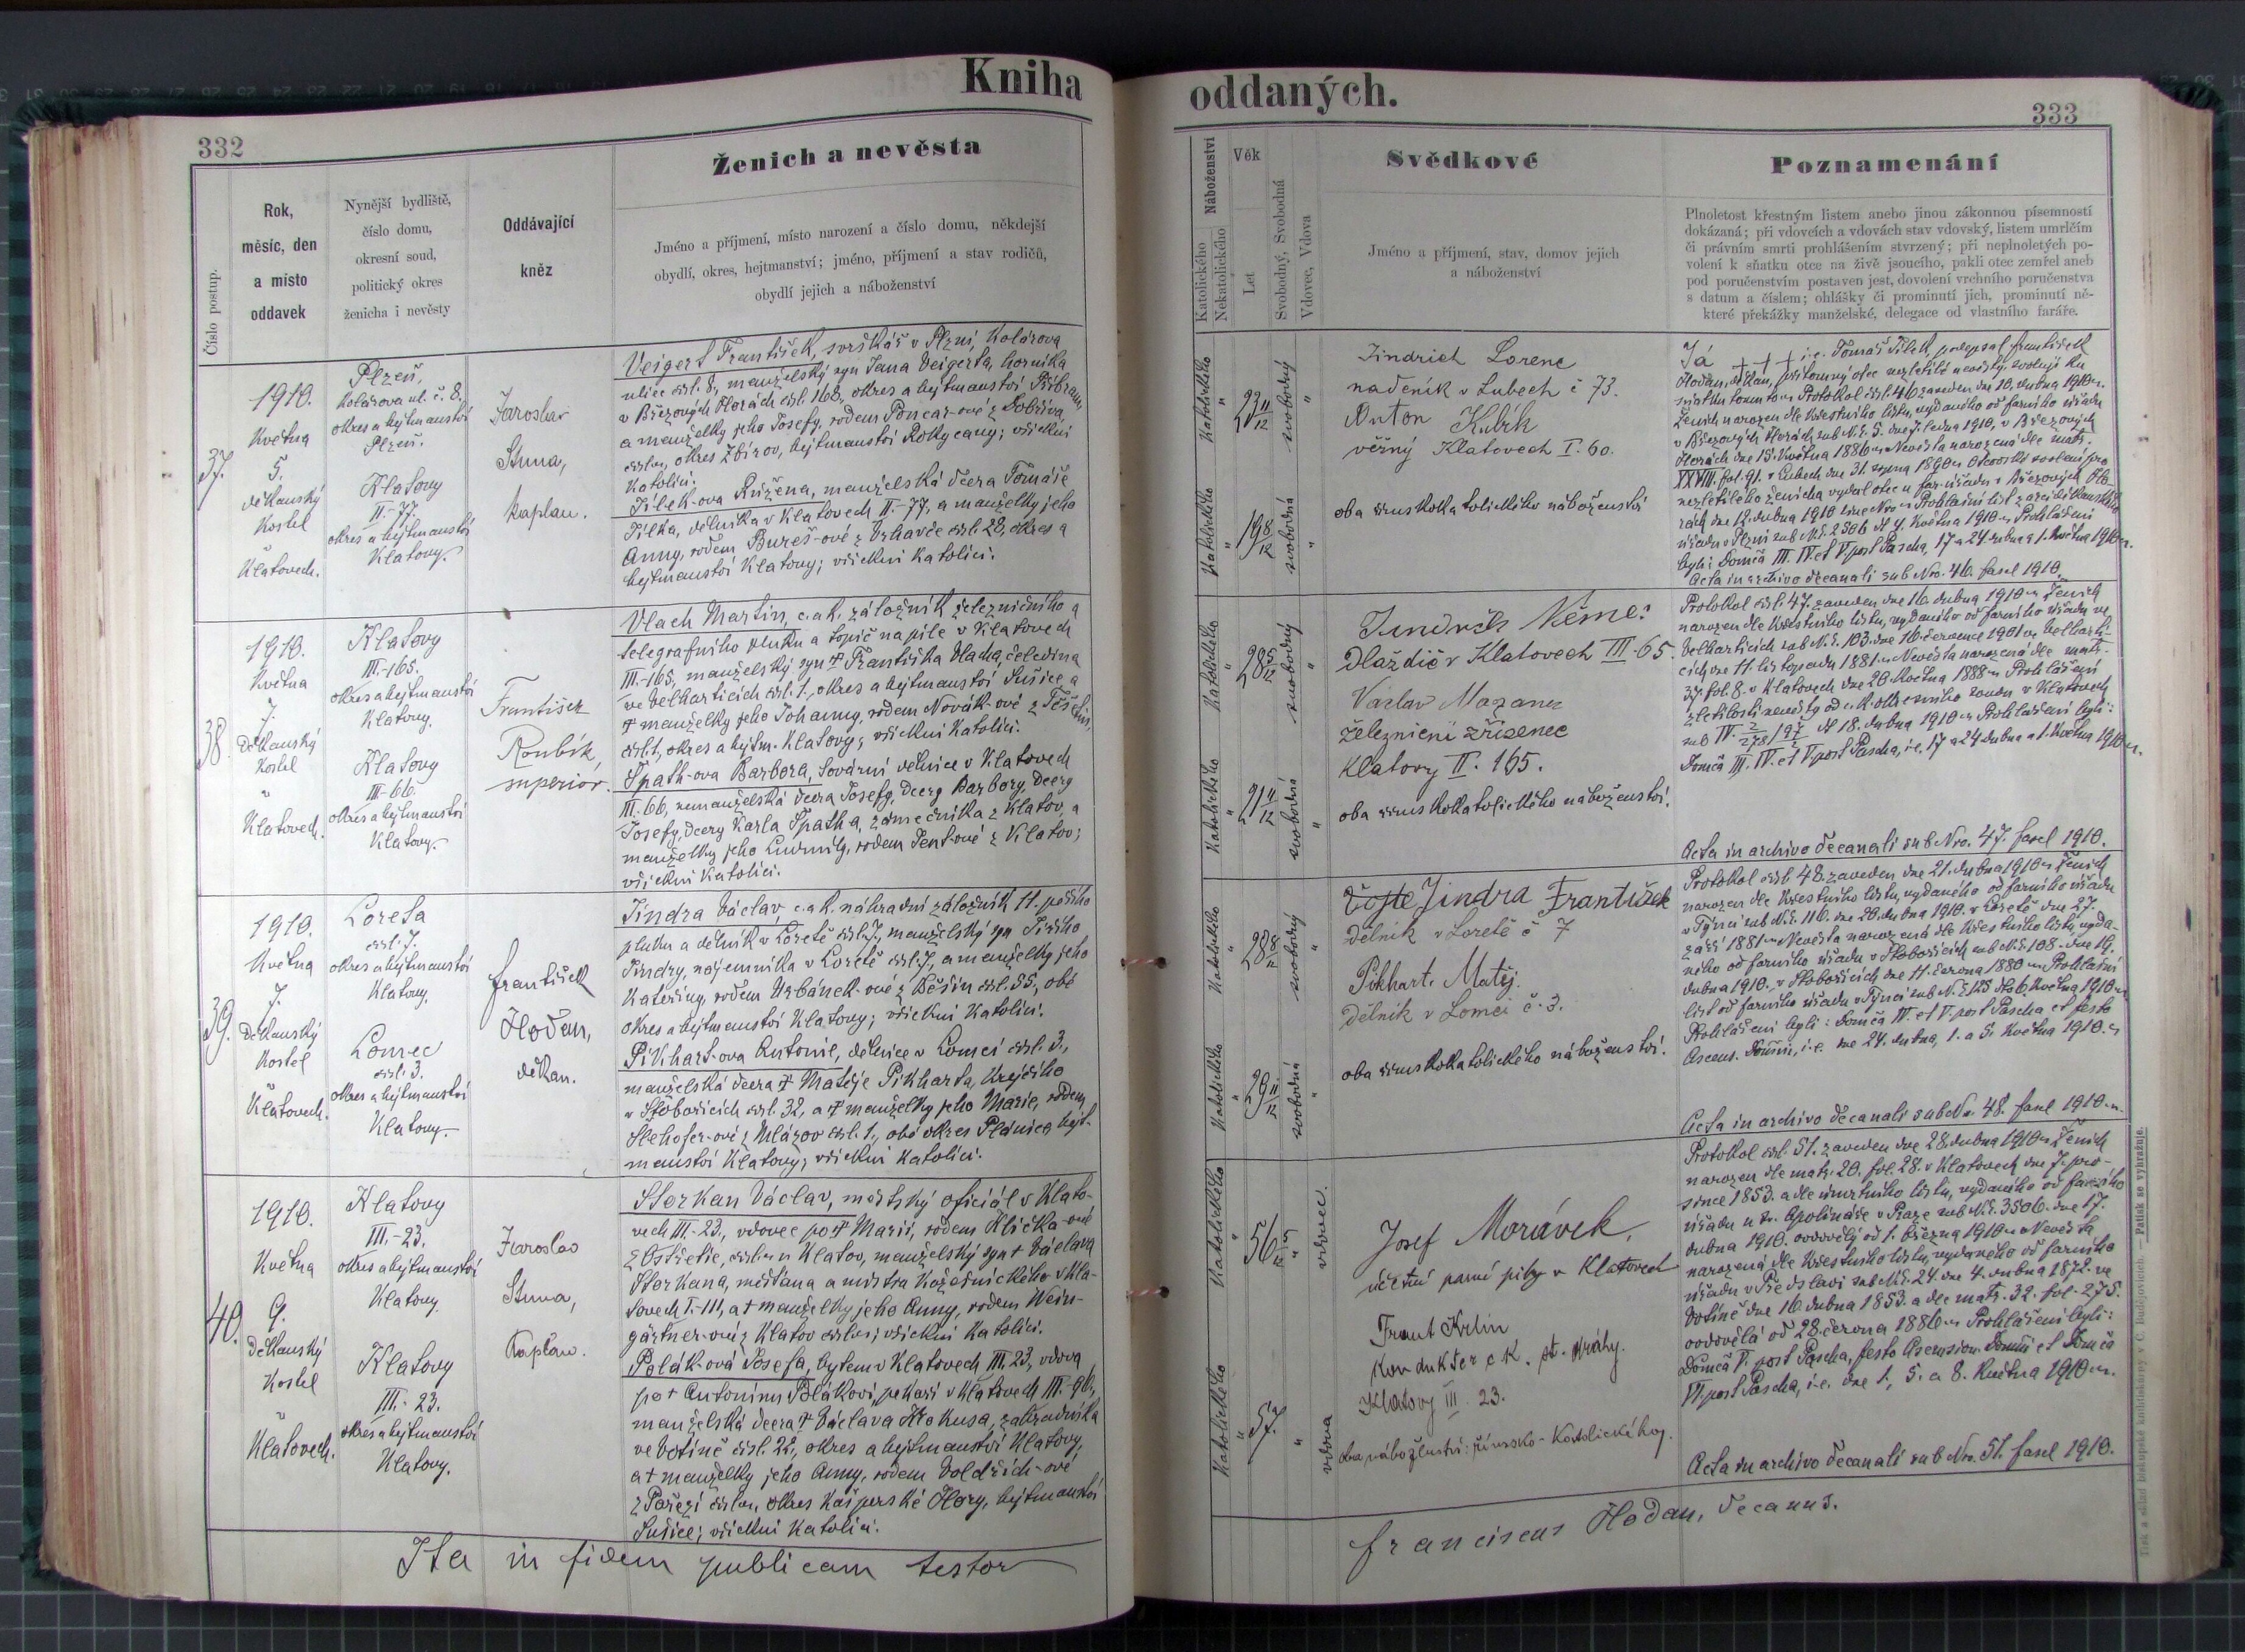 Kniha
332
Číslo postup.
Rok,
měsíc, den
a místo
oddavek
Nynější bydliště,
číslo domu,
okresní soud,
politický okres
ženicha i nevěsty
Oddávající
kněz
Ženich a nevěsta
Jméno a příjmení, místo narození a číslo domu, někdejší
obydlí, okres, hejtmanství; jméno, příjmení a stav rodičů,
obydlí jejich a náboženství
37.
1910.
Května
5.
děkanský
kostel
v
Klatovech.
Plzeň,
Kolárova ul. č. 8.
okres a hejtmanství
Plzeň.
Klatovy
II.-77.
okres a hejtmanství
Klatovy.
Jaroslav
Stuna,
kaplan.
Veigert František, svrškář v Plzni, Kolárova
ulice čísl. 8, manželský syn Jana Veigerta, horníka
v Březových Horách čísl. 168, okres a hejtmanství Příbram,
a manželky jeho Josefy, rodem Poncar-ové z Dobříva
okres Zbirov, hejtmanství Rokycany; všickni
katolíci.
Jílek-ova Růžena, manželská dcera Tomáše
Jílka, dělníka v Klatovech II.-77, a manželky jeho
Anny, rodem Bureš-ové z Vrhavče čísl. 28, okres a
hejtmanství Klatovy; všickni katolíci.
38.
1910.
Května
7.
Děkanský
kostel
v
Klatovech.
Klatovy
III.-165.
okres a hejtmanství
Klatovy.
Klatovy
III.-66.
okres a hejtmanství
Klatovy.
František
Roubík,
superior.
Vlach Martin, c. a k. záložník železničního a
telegrafního pluku a topič na pile v Klatovech
III.-165, manželský syn † Františka Vlacha, čeledína
ve Velharticích čísl. 1., okres a hejtmanství Sušice, a
† manželky jeho Johanny, rodem Novák-ové z Těšetin,
čísl. 1, okres a hejtm. Klatovy; všickni katolíci.
Špath-ova Barbora, tovární dělnice v Klatovech
III.-66, nemanželská dcera Josefy, dcery Barbory, dcery
Josefy, dcery Karla Špatha, zámečníka z Klatov, a
manželky jeho Ludmily, rodem Tent-ové z Klatov;
všickni katolíci.
39.
1910.
Května
7.
Děkanský
kostel
v
Klatovech.
Loreta
čísl. 7.
okres a hejtmanství
Klatovy.
Lomec
čísl. 3.
okres a hejtmanství
Klatovy.
František
Hodan,
děkan.
Jindra Václav, c. a k. náhradní záložník 11. pěšího
pluku a dělník v Loretě čísl. 7., manželský syn Jiřího
Jindry, nájemníka v Loretě čísl. 7, a manželky jeho
Kateřiny, rodem Urbánek-ové z Běšin čísl. 55, obé
okres a hejtmanství Klatovy; všickni katolíci.
Pikhart-ova Antonie, dělnice v Lomci čísl. 3.,
manželská dcera † Matěje Pikharta, krejčího
v Štěbořicích čísl. 32, a † manželky jeho Marie, rodem
Stehofer-ové z Mlázov čísl. 1., obé okres Plánice, hejt-
manství Klatovy; všickni katolíci.
40.
1910.
Května
9.
Děkanský
kostel
v
Klatovech.
Klatovy
III.-23.
okres a hejtmanství
Klatovy.
Klatovy
III.-23.
okres a hejtmanství
Klatovy.
Jaroslav
Stuna,
Kaplan.
Storkan Václav, městský oficiál v Klato-
vech III.-23., vdovec po † Marii, rodem Klička-ové
Klatov, manželský syn † Václava
Storkana, měšťana a mistra kožešnického v Kla-
tovech I.-111, a † manželky jeho Anny, rodem Wein-
gärtner-ové z Klatov; všickni katolíci.
Polák-ová Josefa, bytem v Klatovech III. 23, vdova
po † Antonínu Polákovi, pekaři v Klatovech III.-96,
manželská dcera † Václava Krokusa, zahradníka
ve Votíně čísl. 22., okres a hejtmanství Klatovy,
a † manželky jeho Anny, rodem Voldřich-ové
okres Kašperské Hory, hejtmanství
Sušice; všickni katolíci.
Ita in fidem publicam testor
oddaných.
333
Náboženství
Katolického
Nekatolického
Věk
Let
Svobodný, Svobodná
Vdovec, Vdova
Svědkové
Jméno a příjmení, stav, domov jejich
a náboženství
Poznamenání
Plnoletost křestným listem anebo jinou zákonnou písemností
dokázaná; při vdovcích a vdovách stav vdovský, listem úmrlčím
či právním smrti prohlášením stvrzený; při neplnoletých po-
volení k sňatku otce na živě jsoucího, pakli otec zemřel aneb
pod poručenstvím postaven jest, dovolení vrchního poručenstva
s datum a číslem; ohlášky či prominutí jich, prominutí ně-
které překážky manželské, delegace od vlastního faráře.
Katolického
"
23 11/12
svobodný
"
Katolického
"
19 8/12
svobodná
"
Jindrich Lorenc
nadeník v Lubech č 73.
Anton Kubík
věřný Klatovech I. 60.
oba římskokatolického náboženství
Já +++ i. e. Tomáš Jílek, podepsal František
Hodan, děkan, přítomný otec nezletilé nevěsty, svoluji ku
sňatku tomuto. Protokol čísl. 46 zaveden dne 10. dubna 1910.
Ženich narozen dle křestního listu, vydaného od farního úřadu
v Březových Horách sub N. E. 5. dne 7. ledna 1910, v Březových
Horách dne 15. května 1886. Nevěsta narozená dle matr.
XXVIII. fol. 91. v Lubech dne 31. srpna 1890. Otcovské svolení pro
nezletilého ženicha vydal otec u far. úřadu v Březových Ho-
rách dne 12. dubna 1910 sine Nro. Prohlašní list z arciděkanského
úřadu v Plzni sub N. E. 2506 dt 4. května 1910. Prohlášeni
byli: Domča III. IV. et V. post Pascha, 17 a 24. dubna a 1. května 1910.
Acta in archivo decanali sub Nro. 46. fasc 1910.
Katolického
"
28 5/12
svobodný
"
Katolického
"
21 11/12
svobodná
"
Jindrich Němec
Dlaždič v Klatovech III-65.
Václav Mazanec
železniční zřízenec
Klatovy II. 165.
oba římskokatolického náboženství.
Protokol čísl. 47. zaveden dne 16. dubna 1910. Ženich
narozen dle křestního listu, vydaného od farního úřadu ve
Velharticích sub N. E. 103. dne 16. července 1901 ve Velharti-
cích dne 11. listopadu 1881. Nevěsta narozená dle matr.
37. fol. 8. v Klatovech dne 20. května 1888. Prohlášení
zletilosti nevěsty od c. k. okresního soudu v Klatovech
dt 18. dubna 1910. Prohlášeni byli:
Domča III. IV. et V post Pascha, i. e. 17 a 24 dubna a 1. května 1910.
Acta in archivo decanali sub Nro. 47. fasc 1910.
Katolického
"
28 8/12
svobodný
"
Katolického
"
29 11/12
svobodná
"
Jindra František
dělník v Loretě č 7
Pikhart Matěj.
dělník v Lomci č. 3.
oba římskokatolického náboženství.
Protokol čísl. 48. zaveden dne 21. dubna 1910. Ženich
narozen dle křestního listu, vydaného od farního úřadu
v Týnci sub N. E. 110. dne 20. dubna 1910. v Loretě dne 27.
září 1881. Nevěsta narozená dle křestního listu, vyda-
ného od farního úřadu v Štěbořicích sub N. E. 108. dne 19.
dubna 1910., v Štěbořicích dne 11. června 1880. Prohlašní
list od farního úřadu v Týnci sub N. E. 125 dto 6. května 1910.
Prohlášeni byli: Domča IV. et V. post Pascha et festo
Ascens. Domini, i. e. dne 24. dubna, 1. a 5. května 1910.
Acta in archivo decanali sub Nr. 48. fasc 1910.
Katolického
"
56
"
vdovec.
Katolického
"
57.
"
vdova
Josef Morávek,
účetní parní pily v Klatovech
Frant Krlín
Konduktér c. k. st. dráhy.
Klatovy III. 23.
oba náboženství: římsko-katolického.
Protokol čísl. 51. zaveden dne 28. dubna 1910. Ženich
narozen dle matr. 20. fol. 28. v Klatovech dne 7. pro-
since 1853. a dle úmrtního listu, vydaného od farního
úřadu u sv. Apolináře v Praze sub N. E. 3506. dne 17.
dubna 1910. ovdovělý od 1. března 1910. Nevěsta
narozená dle křestního listu, vydaného od farního
úřadu v Předslavi sub N. E. 24. dne 4. dubna 1872. ve
Votíně dne 16. dubna 1853. a dle matr. 32. fol. 275.
ovdovělá od 28. června 1886. Prohlášeni byli:
Domča V. post Pascha, festo Ascension. Domini et Domča
VI. post Pascha, i. e. dne 1., 5. a 8. května 1910.
Acta in archivo decanali sub Nro. 51. fasc 1910.
Franciscus Hodan, decanus.
Tisk a sklad biskupské knihtiskárny v Č. Budějovicích. — Patisk se vyhražuje.